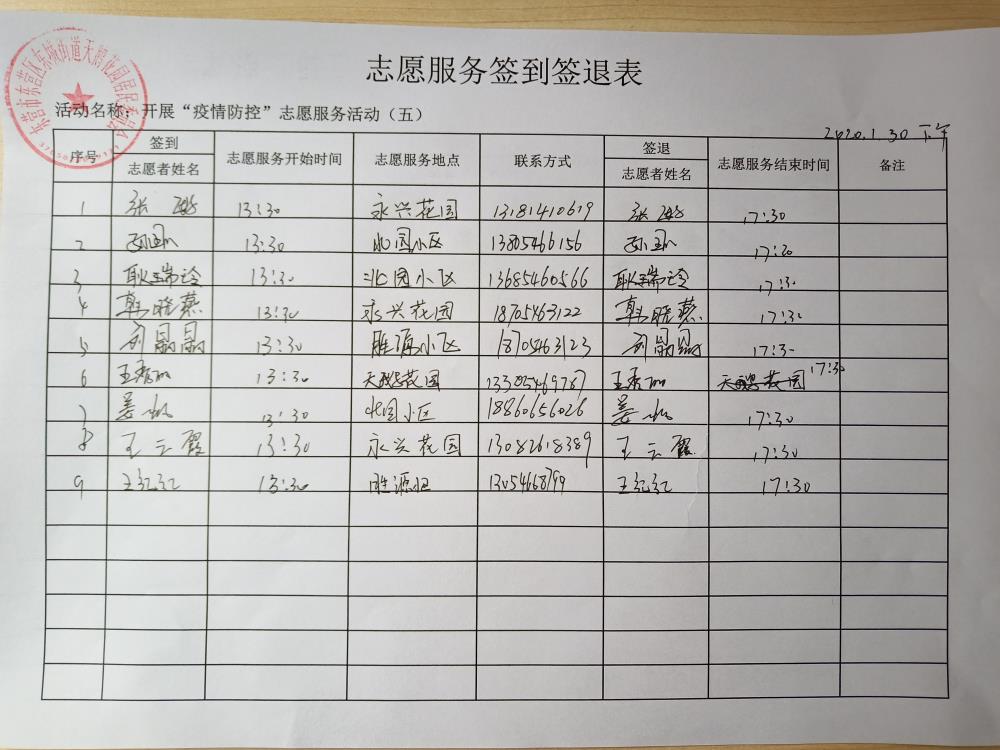 东营市东营区东城街道天鹅花园居民委员会
志愿服务签到签退表
活动名称：开展“疫情防控”志愿服务活动（五）
2020.1.30 下午
序号 签到 志愿者姓名 志愿服务开始时间 志愿服务地点 联系方式 签退 志愿者姓名 志愿服务结束时间 备注
1 张 13:30 永兴花园 13181410619 张 17:30
2 13:30 北园小区 13805466156 17:30
3 耿瑞玲 13:30 北园小区 13685460566 耿瑞玲 17:30
4 韩晓燕 13:30 永兴花园 18705463122 韩晓燕 17:30
5 刘晶晶 13:30 胜源小区 18705463123 刘晶晶 17:30
6 王秀 13:30 天鹅花园 13305469787 王秀 天鹅花园 17:30
7 姜 13:30 北园小区 18860656026 姜 17:30
8 王云霞 13:30 永兴花园 13082618389 王云霞 17:30
9 王红红 13:30 胜源 13054668799 王红红 17:30